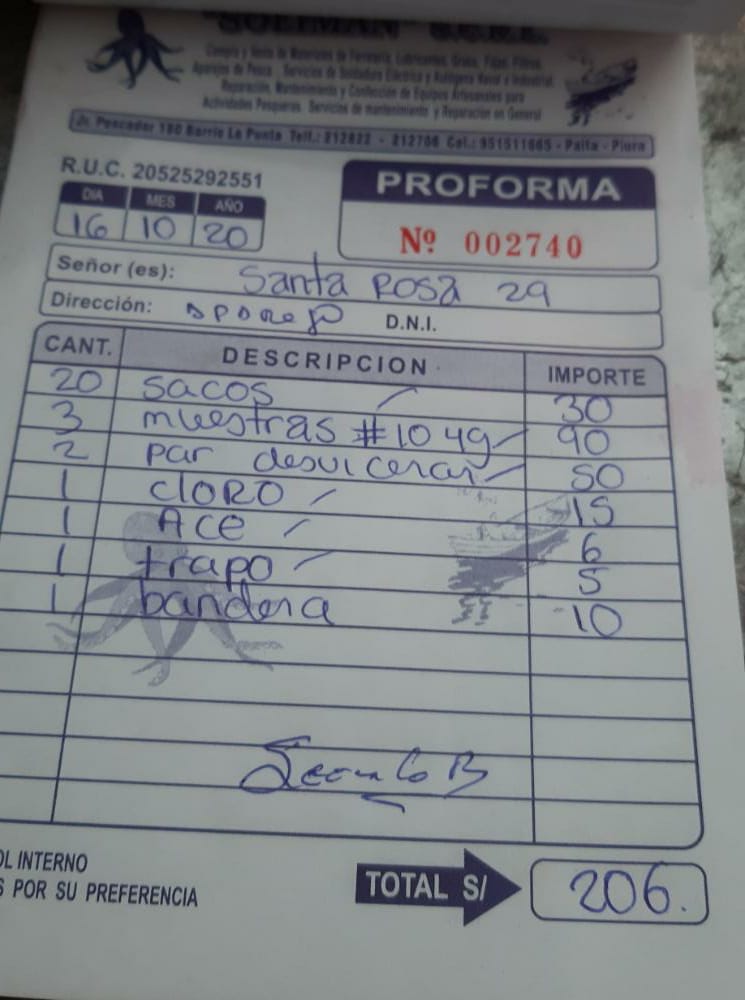 "SOLIMAN" S.C.R.L.
Compra y Venta de Materiales de Ferretería, Lubricantes, Grasa, Filtros
Aparejos de Pesca - Servicios de Soldadura Eléctrica y Autógena Naval e Industrial
Reparación, Mantenimiento y Confección de Equipos Artesanales para
Actividades Pesqueras. Servicios de mantenimiento y Reparación en General
Jr. Pescador 180 Barrio La Punta Telf.: 212622 - 212706 Cel.: 951511665 - Paita - Piura
R.U.C. 20525292551
PROFORMA
DIA MES AÑO
16 10 20
Nº 002740
Señor (es): Santa Rosa 29
Dirección: aparejo D.N.I.
CANT. DESCRIPCION IMPORTE
20 sacos 30
3 muestras #10 90
2 par desvicerar 50
1 CLORO 15
1 ACE 6
1 trapo 5
1 bandera 10
OL INTERNO
S POR SU PREFERENCIA
TOTAL S/ 206.